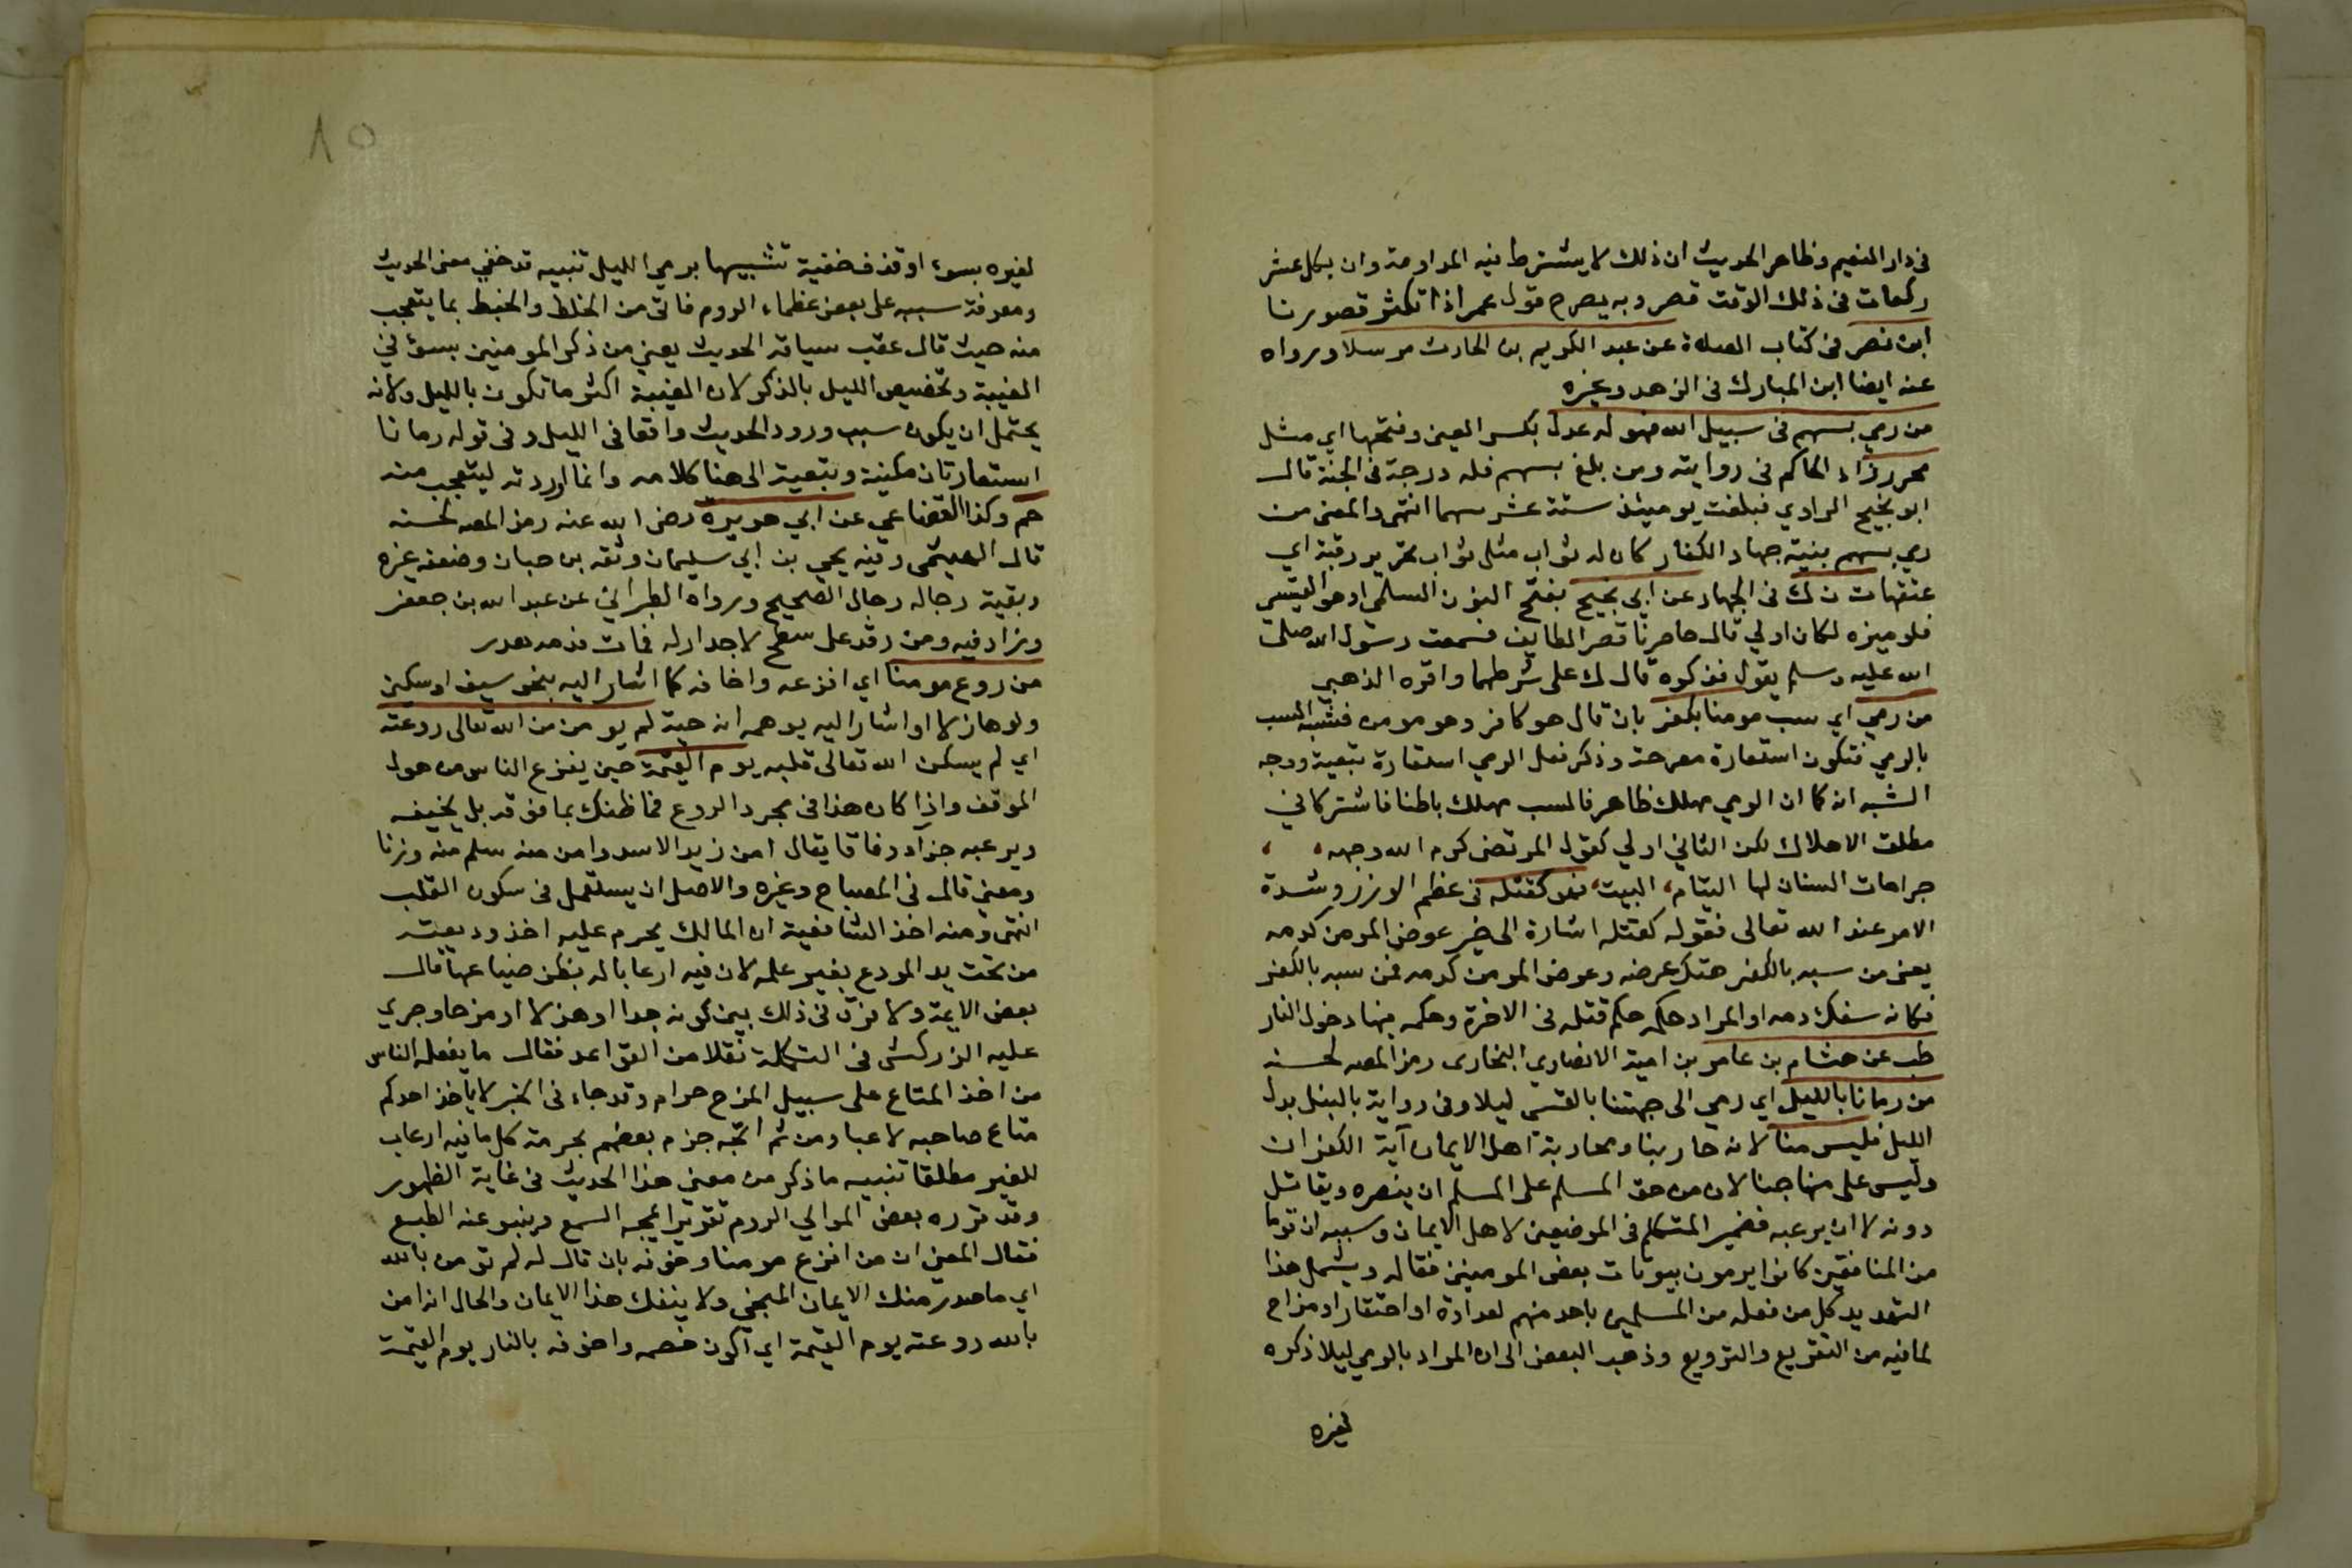 في دار النعيم وظاهر الحديث ان ذلك لا يشترط فيه المداومة وان بكل عشر
ركعات في ذلك الوقت قصر وبه يصرح قول عمر اذا تكثر قصورنا
ابن نصر في كتاب الصلاة عن عبد الكريم بن الحارث مرسلا ورواه
عنه ايضا ابن المبارك في الزهد وغيره
من رمي بسهم في سبيل الله فهو له عدل بكسر العين وفتحها اي مثل
محرر زاد الحاكم في روايته ومن بلغ بسهم فله درجة في الجنة قال
ابو نجيح الراوي فبلغت يومئذ ستة عشر سهما انتهى والمعنى من
رمي بسهم بنية جهاد الكفار كان له ثواب مثل ثواب تحرير رقبة اي
عتقها ت ن ك في الجهاد عن ابي نجيح بفتح النون السلمي او هو القيسي
فلو ميزه لكان اولي قال حاصرنا قصر الطايف فسمعت رسول الله صلى
الله عليه وسلم يقول فذكره قال ك على شرطهما واقره الذهبي
من رمي اي سب مومنا بكفر بان قال هو كافر وهو مومن فشبه السب
بالرمي فتكون استعارة مصرحة وذكر فعل الرمي استعارة تبعية ووجه
الشبه انه كما ان الرمي مهلك ظاهر فالسب مهلك باطنا فاشتركا في
مطلق الاهلاك لكن الثاني اولي كقول المرتضى كرم الله وجهه
جراحات السنان لها التيام، البيت، فهو كقتله في عظم الوزر وشدة
الامر عند الله تعالى فقوله كقتله اشارة الى خبر عرض المومن كدمه
يعني من سبه بالكفر هتك عرضه وعرض المومن كدمه فمن سبه بالكفر
فكانه سفك دمه او المراد حكمه حكم قتله في الاخرة وحكمه فيها دخول النار
طب عن هشام بن عامر بن امية الانصاري البخارى رمز المص لحسنه
من رمانا بالليل اي رمي الى جهتنا بالقسي ليلا وفي رواية بالنبل بدل
الليل فليس منا لانه حاربنا ومحاربة اهل الايمان آية الكفران
وليس على منهاجنا لان من حق المسلم على المسلم ان ينصره ويقاتل
دونه لا ان يرعبه فضمير المتكلم في الموضعين لاهل الايمان وسببه ان قوما
من المنافقين كانوا يرمون بيوتات بعض المومنين فقاله ويشمل هذا
التهديد كل من فعله من المسلمين باحد منهم لعداوة او احتقار او مزاح
لما فيه من التفزيع والترويع وذهب البعض الى ان المراد بالرمي ليلا ذكره
لغيره
١٥
لغيره بسوء او قذف خفية تشبيها برمي الليل تنبيه قد خفي معنى الحديث
ومعرفة سببه على بعض عظماء الروم فاتى من الخلط والخبط بما يتعجب
منه حيث قال عقب سياقه الحديث يعني من ذكر المومنين بسوء في
الغيبة وتخصيص الليل بالذكر لان الغيبة اكثر ما تكون بالليل ولانه
يحتمل ان يكون سبب ورود الحديث واقعا في الليل وفي قوله رمانا
استعارتان مكنية وتبعية الى هنا كلامه وانما اوردته ليتعجب منه
حم وكذا القضاعي عن ابي هويرة رضي الله عنه رمز المص لحسنه
قال الهيثمى وفيه يحي بن ابي سليمان وثقه بن حبان وضعفه غيره
وبقية رجاله رجال الصحيح ورواه الطبراني عن عبد الله بن جعفر
وزاد فيه ومن رقد على سطح لا جدار له فمات فدمه هدر
من روع مومنا اي افزعه واخافه كما اشار اليه بنحو سيف او سكين
ولو هازلا او اشار اليه يوهمه انه حية لم يومن من الله تعالى روعته
اي لم يسكن الله تعالى قلبه يوم القيمة حين يفزع الناس من هول
الموقف واذا كان هذا في مجرد الروع فما ظنك بما فوقه بل يخيفه
ويرعبه جزاء وفاقا يقال امن زيد الاسد وامن منه سلم منه وزنا
ومعني قال في المصباح وغيره والاصل ان يستعمل في سكون القلب
انتهى ومنه اخذ الشافعية ان المالك يحرم عليه اخذ وديعته
من تحت يد المودع بغير علمه لان فيه ارعابا له بظن ضياعها قال
بعض الايمة ولا فرق في ذلك بين كونه جدا او هزلا او مزحا وجري
عليه الزركشي في التكملة نقلا من القواعد فقال ما يفعله الناس
من اخذ المتاع على سبيل المزح حرام وقد جاء في الخبر لا ياخذ احدكم
متاع صاحبه لاعبا ومن ثم اتجه جزم بعضهم بحرمة كل ما فيه ارعاب
للغير مطلقا تنبيه ما ذكر من معني هذا الحديث في غاية الظهور
وقد قرره بعض الموالي الروم تقريرا يمجه السمع وينبو عنه الطبع
فقال المعني ان من افزع مومنا وخوفه بان قال له لم تومن بالله
اي ما صدر منك الايمان المنجي ولا ينفك هذا الايمان والحال انه امن
بالله روعته يوم القيمة اي اكون خصمه واخوفه بالنار يوم القيمة